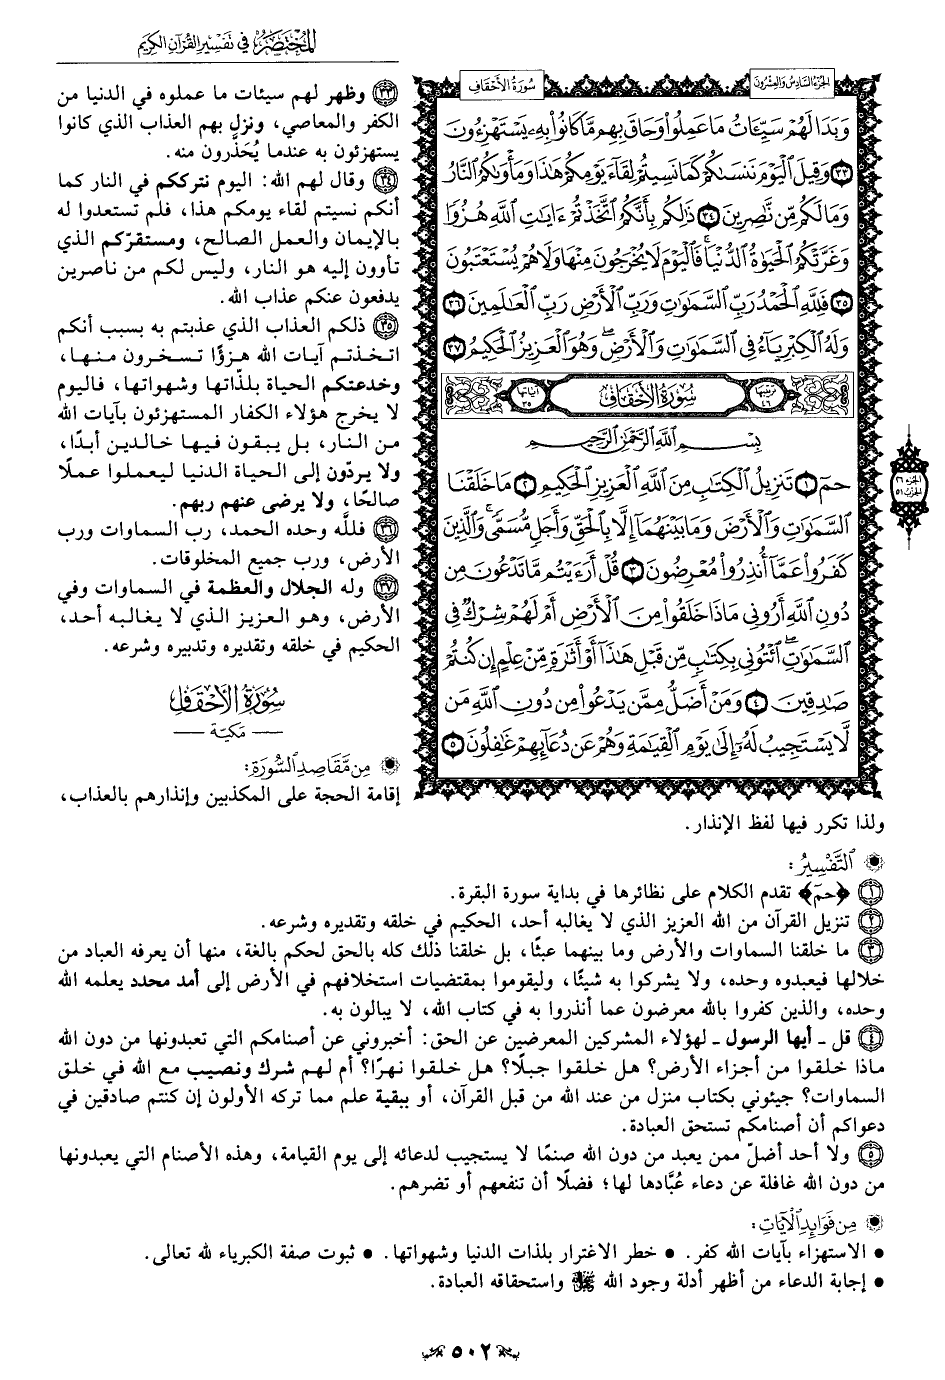 المختصر في تفسير القرآن الكريم
الجزء السادس والعشرون
سورة الأحقاف
وَبَدَا لَهُمْ سَيِّـَٔاتُ مَا عَمِلُوا۟ وَحَاقَ بِهِم مَّا كَانُوا۟ بِهِۦ يَسْتَهْزِءُونَ
٣٣ وَقِيلَ ٱلْيَوْمَ نَنسَىٰكُمْ كَمَا نَسِيتُمْ لِقَآءَ يَوْمِكُمْ هَٰذَا وَمَأْوَىٰكُمُ ٱلنَّارُ
وَمَا لَكُم مِّن نَّٰصِرِينَ ٣٤ ذَٰلِكُم بِأَنَّكُمُ ٱتَّخَذْتُمْ ءَايَٰتِ ٱللَّهِ هُزُوًا
وَغَرَّتْكُمُ ٱلْحَيَوٰةُ ٱلدُّنْيَا ۚ فَٱلْيَوْمَ لَا يُخْرَجُونَ مِنْهَا وَلَا هُمْ يُسْتَعْتَبُونَ
٣٥ فَلِلَّهِ ٱلْحَمْدُ رَبِّ ٱلسَّمَٰوَٰتِ وَرَبِّ ٱلْأَرْضِ رَبِّ ٱلْعَٰلَمِينَ ٣٦
وَلَهُ ٱلْكِبْرِيَآءُ فِى ٱلسَّمَٰوَٰتِ وَٱلْأَرْضِ ۖ وَهُوَ ٱلْعَزِيزُ ٱلْحَكِيمُ ٣٧
ترتيبها ٤٦ سُورَةُ الأَحْقَافِ آياتها ٣٥
بِسْمِ ٱللَّهِ ٱلرَّحْمَٰنِ ٱلرَّحِيمِ
حمٓ ١ تَنزِيلُ ٱلْكِتَٰبِ مِنَ ٱللَّهِ ٱلْعَزِيزِ ٱلْحَكِيمِ ٢ مَا خَلَقْنَا
ٱلسَّمَٰوَٰتِ وَٱلْأَرْضَ وَمَا بَيْنَهُمَآ إِلَّا بِٱلْحَقِّ وَأَجَلٍ مُّسَمًّى ۚ وَٱلَّذِينَ
كَفَرُوا۟ عَمَّآ أُنذِرُوا۟ مُعْرِضُونَ ٣ قُلْ أَرَءَيْتُم مَّا تَدْعُونَ مِن
دُونِ ٱللَّهِ أَرُونِى مَاذَا خَلَقُوا۟ مِنَ ٱلْأَرْضِ أَمْ لَهُمْ شِرْكٌ فِى
ٱلسَّمَٰوَٰتِ ۖ ٱئْتُونِى بِكِتَٰبٍ مِّن قَبْلِ هَٰذَآ أَوْ أَثَٰرَةٍ مِّنْ عِلْمٍ إِن كُنتُمْ
صَٰدِقِينَ ٤ وَمَنْ أَضَلُّ مِمَّن يَدْعُوا۟ مِن دُونِ ٱللَّهِ مَن
لَّا يَسْتَجِيبُ لَهُۥٓ إِلَىٰ يَوْمِ ٱلْقِيَٰمَةِ وَهُمْ عَن دُعَآئِهِمْ غَٰفِلُونَ ٥
الجزء ٢٦
الحزب ٥١
٣٣ وظهر لهم سيئات ما عملوه في الدنيا من
الكفر والمعاصي، ونزل بهم العذاب الذي كانوا
يستهزئون به عندما يُحَذَّرون منه.
٣٤ وقال لهم الله: اليوم نترككم في النار كما
أنكم نسيتم لقاء يومكم هذا، فلم تستعدوا له
بالإيمان والعمل الصالح، ومستقرّكم الذي
تأوون إليه هو النار، وليس لكم من ناصرين
يدفعون عنكم عذاب الله.
٣٥ ذلكم العذاب الذي عذبتم به بسبب أنكم
اتخذتم آيات الله هزؤًا تسخرون منها،
وخدعتكم الحياة بلذّاتها وشهواتها، فاليوم
لا يخرج هؤلاء الكفار المستهزئون بآيات الله
من النار، بل يبقون فيها خالدين أبدًا،
ولا يردّون إلى الحياة الدنيا ليعملوا عملًا
صالحًا، ولا يرضى عنهم ربهم.
٣٦ فللَّه وحده الحمد، رب السماوات ورب
الأرض، ورب جميع المخلوقات.
٣٧ وله الجلال والعظمة في السماوات وفي
الأرض، وهو العزيز الذي لا يغالبه أحد،
الحكيم في خلقه وتقديره وتدبيره وشرعه.
سُورَةُ الأَحْقَافِ
— مَكيّة —
مِن مَّقَاصِدِ السُّورَةِ:
إقامة الحجة على المكذبين وإنذارهم بالعذاب،
ولذا تكرر فيها لفظ الإنذار.
التَّفْسِيرُ:
١ ﴿حمٓ﴾ تقدم الكلام على نظائرها في بداية سورة البقرة.
٢ تنزيل القرآن من الله العزيز الذي لا يغالبه أحد، الحكيم في خلقه وتقديره وشرعه.
٣ ما خلقنا السماوات والأرض وما بينهما عبثًا، بل خلقنا ذلك كله بالحق لحكم بالغة، منها أن يعرفه العباد من
خلالها فيعبدوه وحده، ولا يشركوا به شيئًا، وليقوموا بمقتضيات استخلافهم في الأرض إلى أمد محدد يعلمه الله
وحده، والذين كفروا بالله معرضون عما أنذروا به في كتاب الله، لا يبالون به.
٤ قل ـ أيها الرسول ـ لهؤلاء المشركين المعرضين عن الحق: أخبروني عن أصنامكم التي تعبدونها من دون الله
ماذا خلقوا من أجزاء الأرض؟ هل خلقوا جبلًا؟ هل خلقوا نهرًا؟ أم لهم شرك ونصيب مع الله في خلق
السماوات؟ جيئوني بكتاب منزل من عند الله من قبل القرآن، أو ببقية علم مما تركه الأولون إن كنتم صادقين في
دعواكم أن أصنامكم تستحق العبادة.
٥ ولا أحد أضلّ ممن يعبد من دون الله صنمًا لا يستجيب لدعائه إلى يوم القيامة، وهذه الأصنام التي يعبدونها
من دون الله غافلة عن دعاء عُبَّادها لها؛ فضلًا أن تنفعهم أو تضرهم.
مِن فَوَائِدِ الآيَاتِ:
• الاستهزاء بآيات الله كفر. • خطر الاغترار بلذات الدنيا وشهواتها. • ثبوت صفة الكبرياء لله تعالى.
• إجابة الدعاء من أظهر أدلة وجود الله ﷻ واستحقاقه العبادة.
٥٠٢